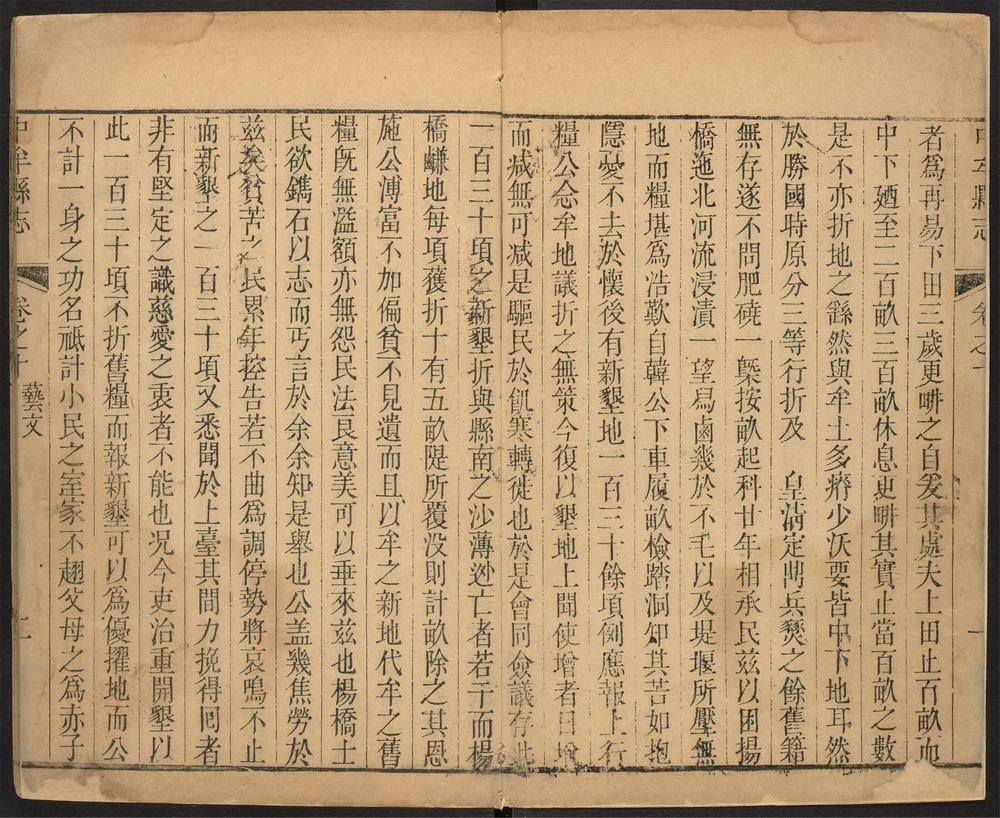 中牟縣志
卷之十
者爲再易下田三歲更畊之自爰其處夫上田止百畝而
中下廼至二百畝三百畝休息更畊其實止當百畝之數
是不亦折地之繇然與牟土多瘠少沃要皆中下地耳然
於勝國時原分三等行折及　皇淸定鼎兵燹之餘舊籍
無存遂不問肥磽一槩按畝起科廿年相承民茲以困揚
橋迤北河流浸漬一望舄鹵幾於不毛以及堤堰所壓無
地而糧堪爲浩歎自韓公下車履畝檢踏洞知其苦如抱
隱憂不去於懷後有新墾地一百三十餘頃例應報上行
糧公念牟地議折之無策今復以墾地上聞使增者日增
而减無可减是驅民於飢寒轉徙也於是會同僉議存此
一百三十頃之新墾折與縣南之沙薄逃亡者若干而楊
橋鹻地每項獲折十有五畝隄所覆没則計畝除之其恩
施公溥富不加偏貧不見遺而且以牟之新地代牟之舊
糧旣無溢額亦無怨民法良意美可以垂來茲也楊橋士
民欲鐫石以志而丐言於余余知是舉也公盖幾焦勞於
茲矣貧苦之民累年控告若不曲爲調停勢將哀鳴不止
而新墾之一百三十項又悉聞於上臺其間力挽得囘者
非有堅定之識慈愛之衷者不能也况今吏治重開墾以
此一百三十項不折舊糧而報新墾可以爲優擢地而公
不計一身之功名祇計小民之室家不趐父母之爲赤子
中牟縣志
卷之十
藝文